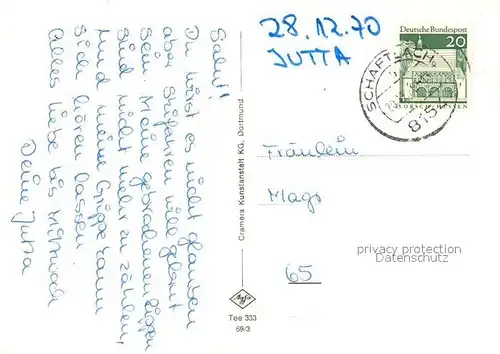 28.12.70
JUTTA
Deutsche Bundespost
20
LORSCH/HESSEN
SCHAFTLACH
815
Salut!
Du wirst es nicht glauben
aber Skifahren wäre gelernt
sein. Meine gebrochenen Rippen
sind nicht mehr zu zählen,
und meine Grippe kann
sich hören lassen
Alles Liebe bis Mittwoch
Deine Jutta
Cramers Kunstanstalt KG, Dortmund
Agfa
Tee 333
69/3
Fräulein
Mags
65
privacy protection
Datenschutz